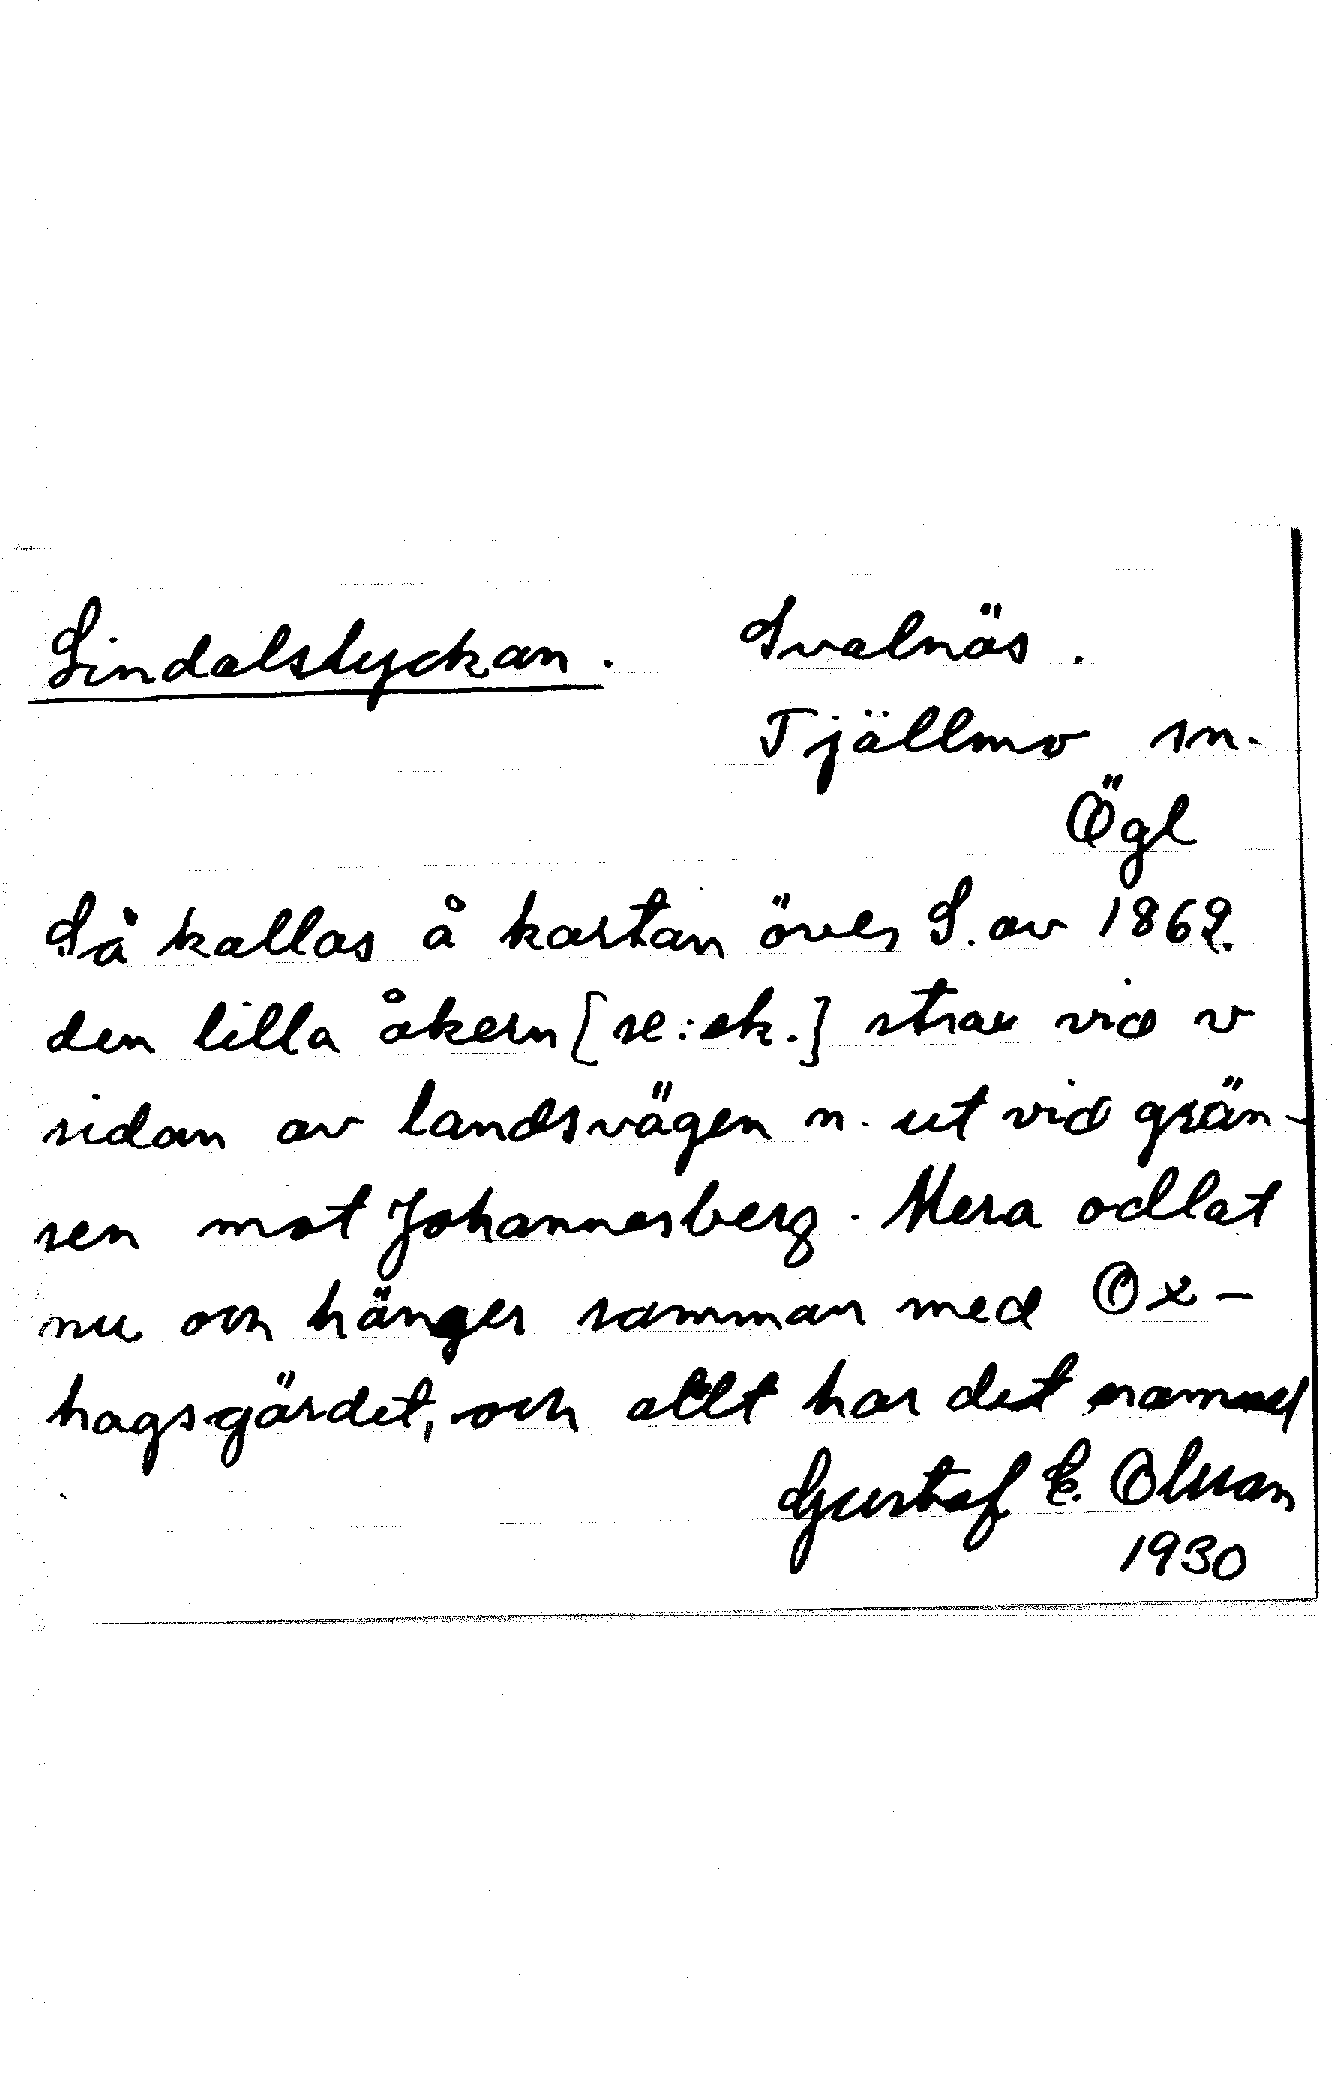 Lindalstyckan. Svalnäs.
Tjällmo sn.
Ögl
Så kallas å kartan över S. av 1869.
den lilla åkern [se: ek.] strax vid v
sidan av landsvägen n. ut vid grän-
sen mot Johannesberg. Mera odlat
nu och hänger samman med Ox-
hagsgärdet, och allt har det namnet
Gustaf E. Olsson
1930